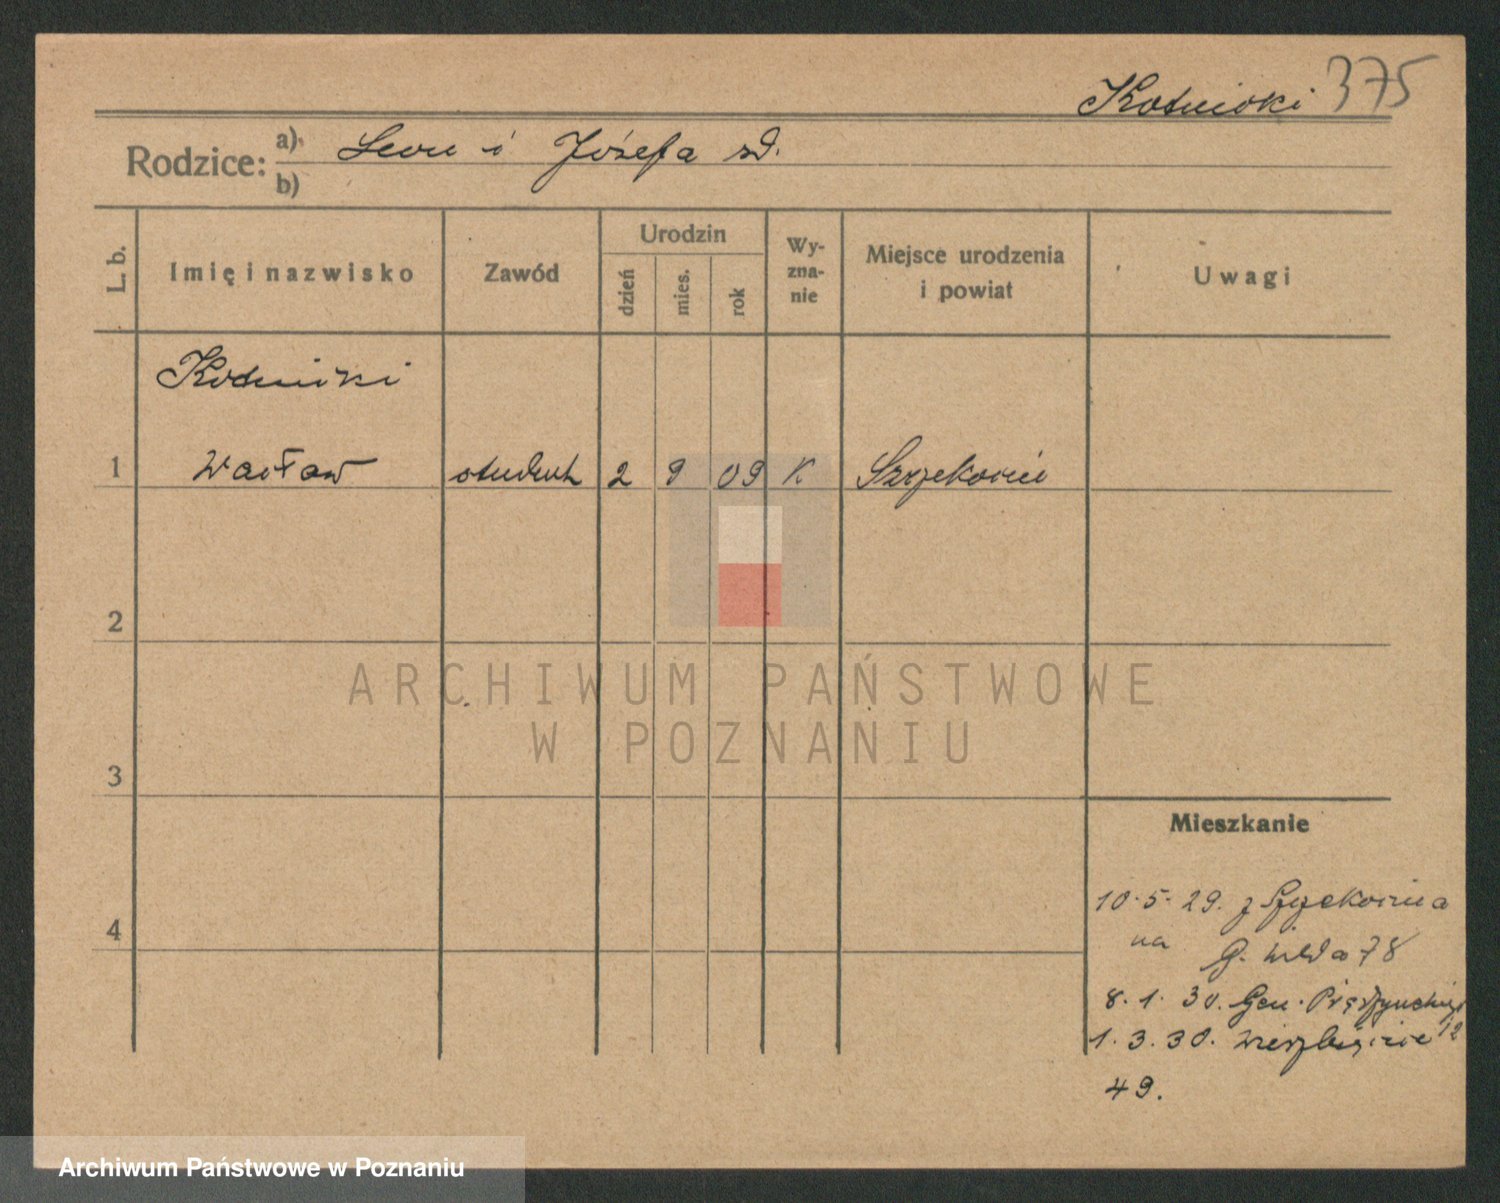 375
Rodzice: a) Leon i Józefa zd.
b)
L. b.
Imię i nazwisko
Zawód
Urodzin
dzień
mies.
rok
Wy-
zna-
nie
Miejsce urodzenia
i powiat
Uwagi
1 Wacław student 2 9 09 K
2
3
4
Mieszkanie
10.5.29. z
na G. Wilda 78
8.1.30. Gen. Prądzyńskiego
12
1.3.30. Wierzbięcice
49.
ARCHIWUM PAŃSTWOWE
W POZNANIU
Archiwum Państwowe w Poznaniu